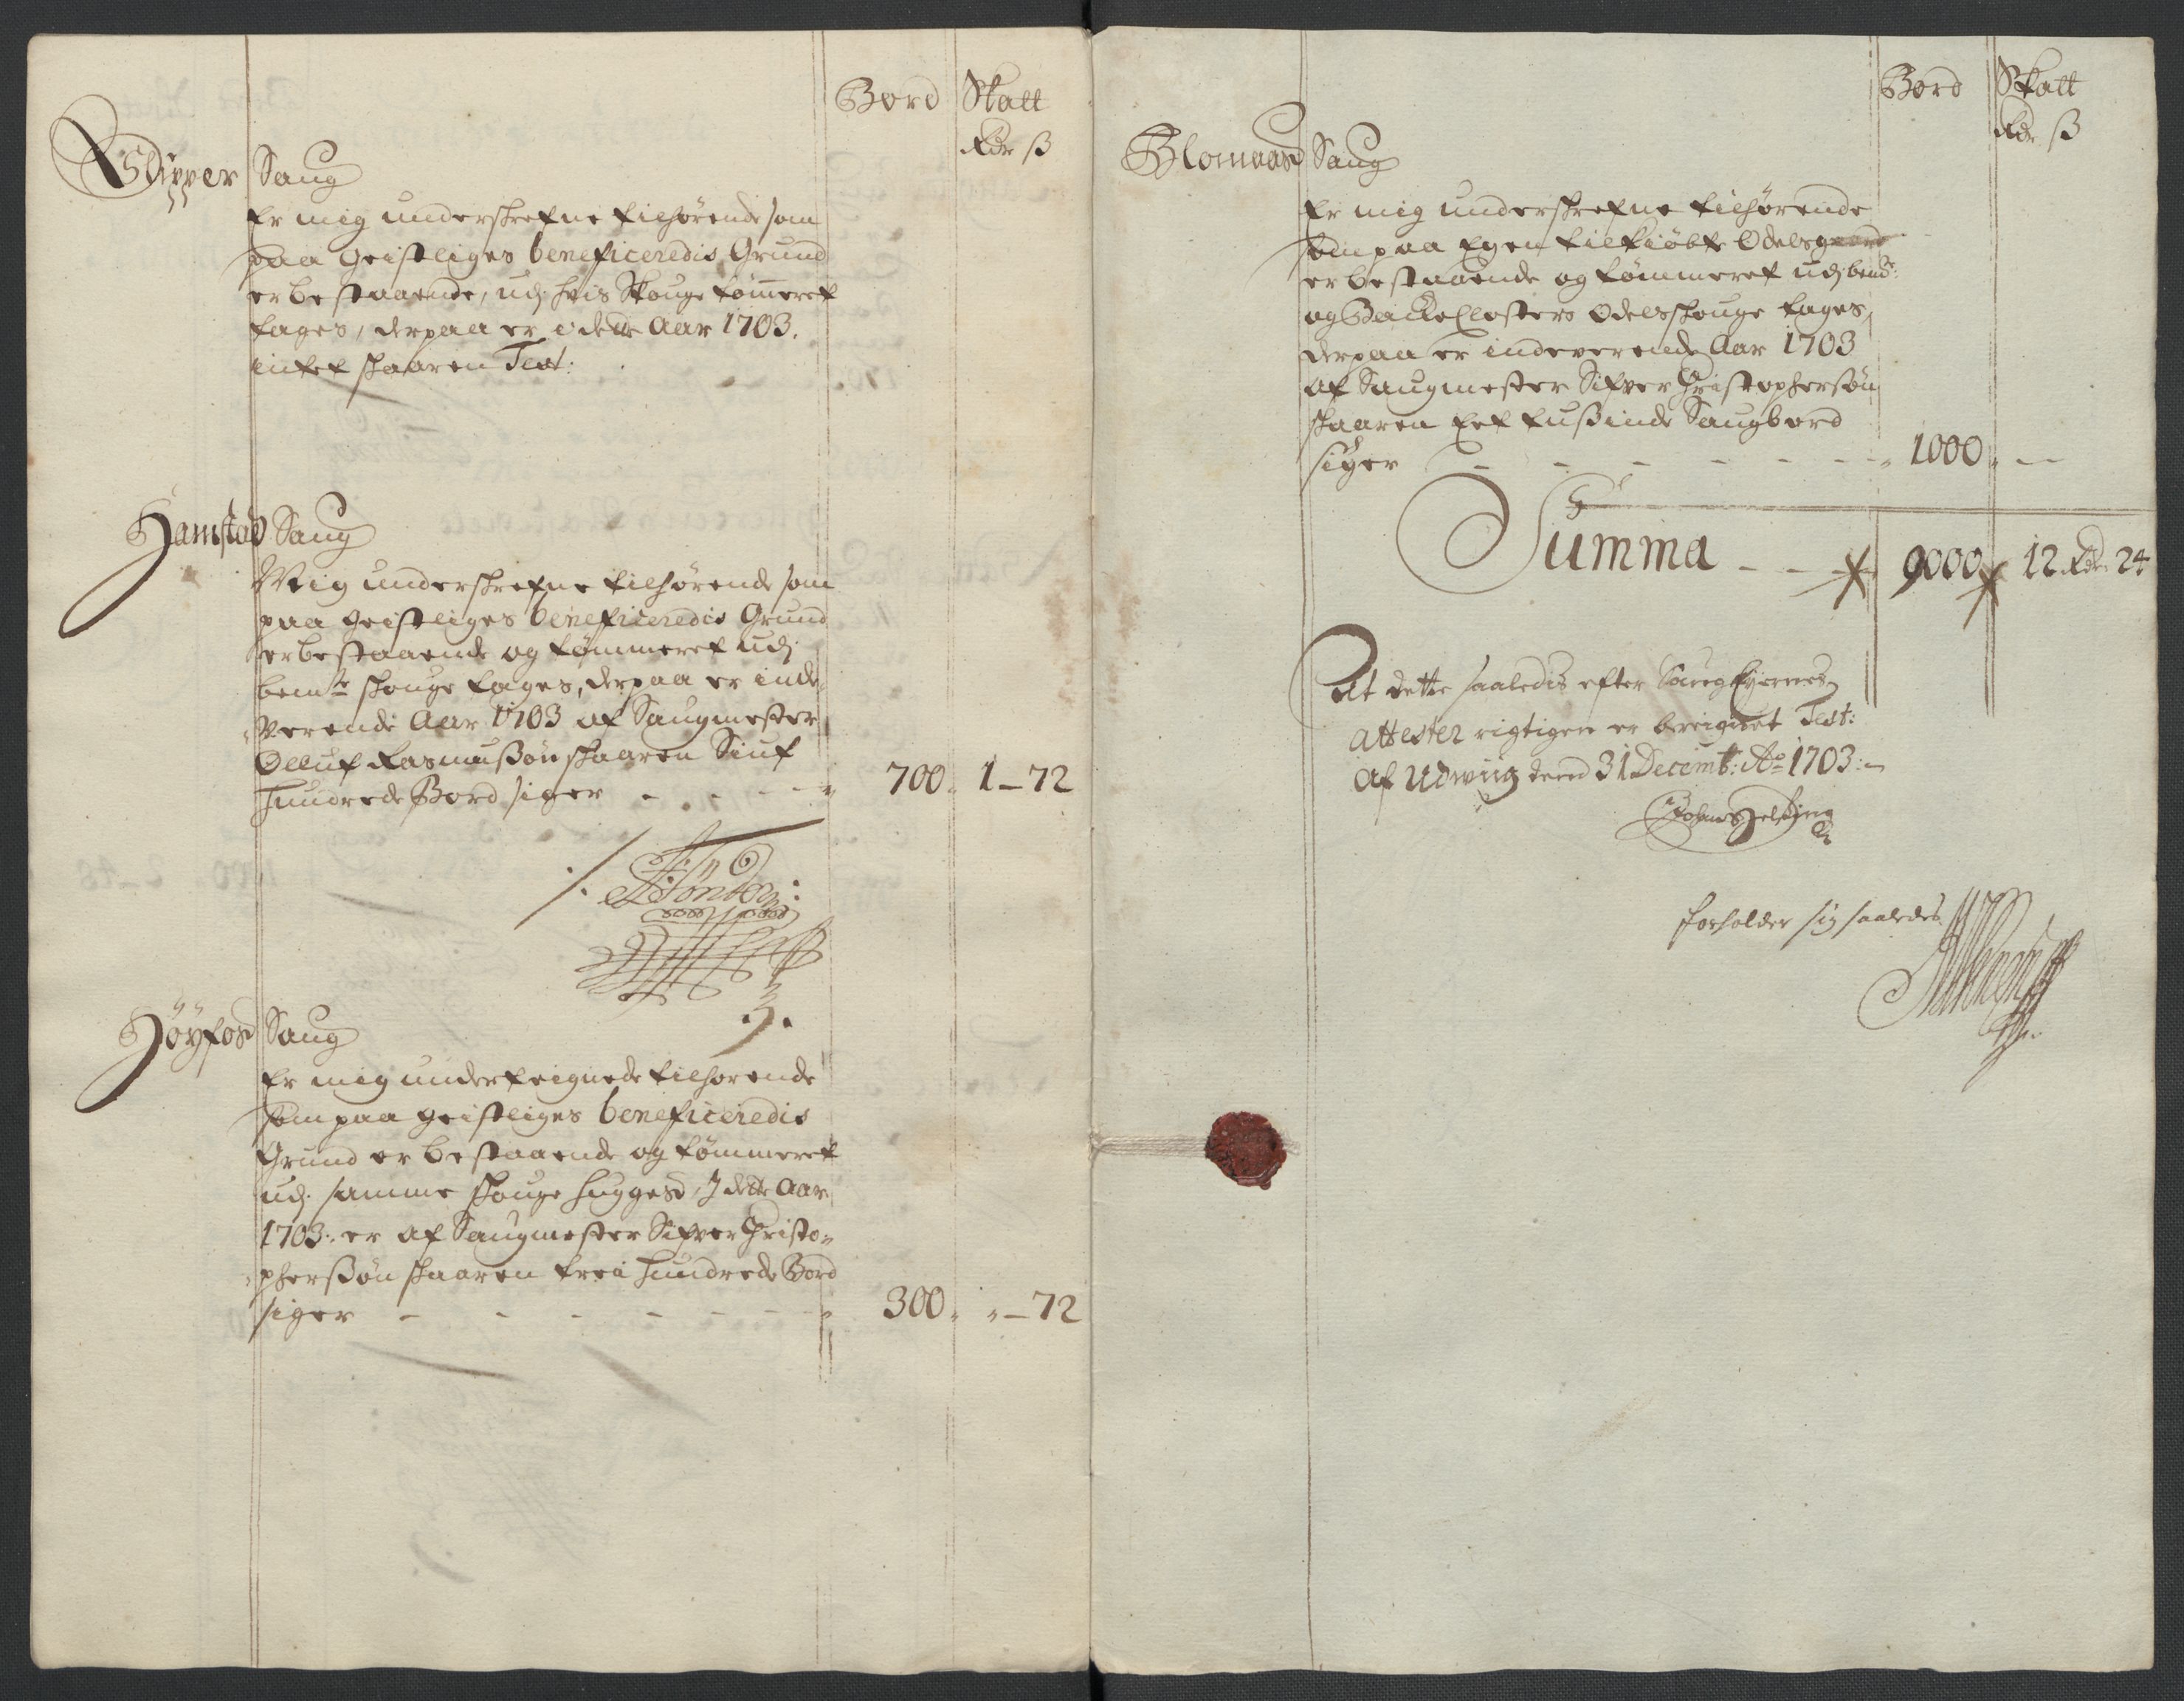 Bord Skatt
Rdr ß
Saug
Er mig underskrefne tilhørende som
paa geistliges beneficeredis Grund
er bestaaende, udj hvis Skouge tømeret
tages, derpaa er i dette Aar 1703.
intet skaaren Test:
Hamstad Saug
Mig underskrefne tilhørende som
paa geistliges beneficeredis Grund
er bestaaende og tømmeret udj
bemte skouge tages, derpaa er inde
verende Aar 1703 af Saugmester
Olluf Rasmussøn skaaren Siuf
hundrede Bord siger - - - - 700. 1-72
Høyfos Saug
Er mig underteignede tilhørende
som paa geistliges beneficeredis
Grund er bestaaende og tømmeret
udj. samme skouge hugges, J dette Aar
1703. er af Saugmester Sifver Christo-
phersøn skaaren trei hundrede Bord
siger - - - - - - 300. " - 72
Bord Skatt
Rdr ß
Blomaas Saug
Er mig underskrefne tilhørende
som paa Egen tilkiøbte Odelsgaard
er bestaaende og tømmeret udj bemte:
og Backe Closters Odelsskouge tages,
derpaa er indeverende Aar 1703
af Saugmester Sifver Christophersøn
skaaren Eet tusinde Saugbord
siger - - - - - - 1000. - -
Summa - - 9000 12 Rdr 24
At dette saaledis efter Saug Eyernes
attester rigtigen er bereignet Test:
Af Udwiig dend 31 Decemb: Ao 1703:-
forholder sig saaledes